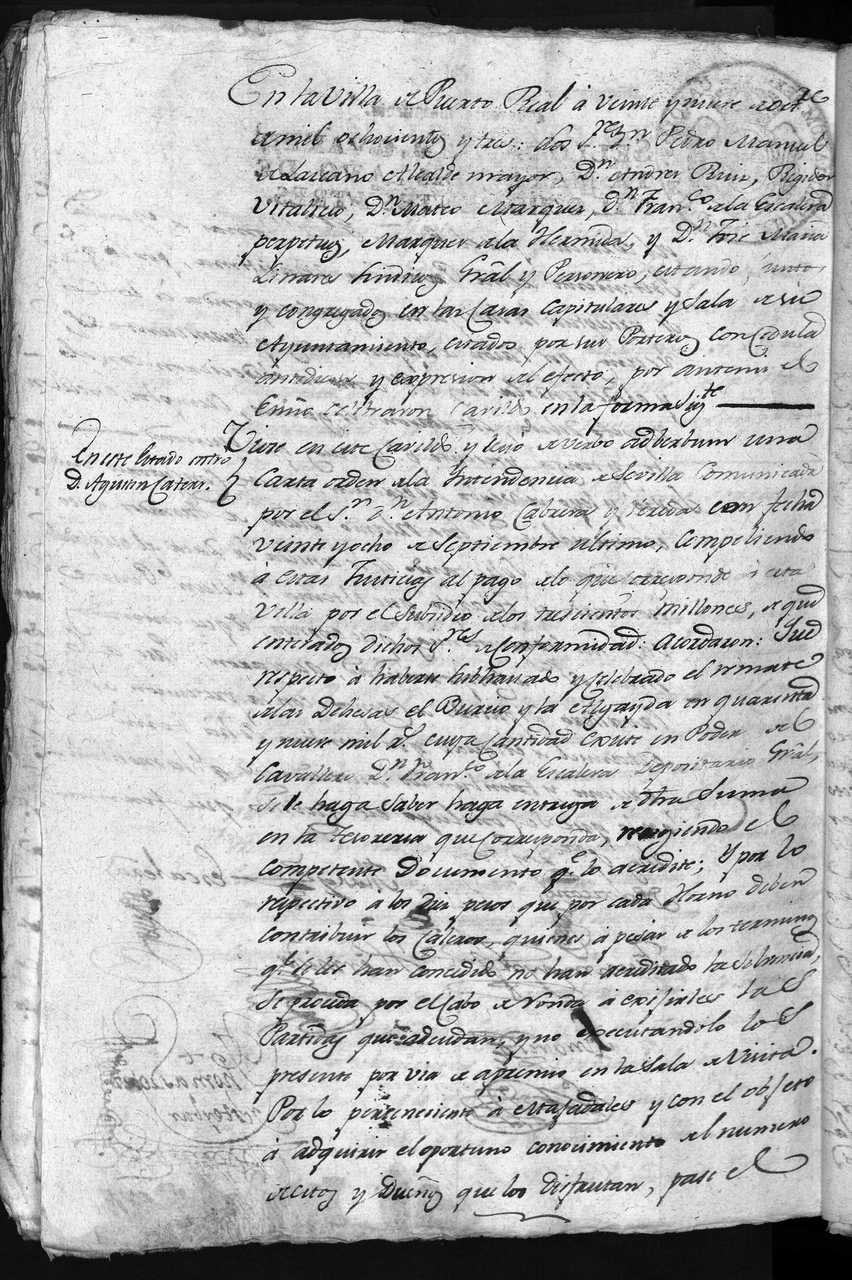 En la Villa de Puerto Real à veinte y nueve de Oct.e
de mil ochocientos y tres: los S.res D.n Pedro Manuel
de Lazcano Alcalde mayor, D.n Andres Ruiz, Regidor
Vitalicio, D.n Mateo Marquez, D.n Fran.co de la Escalera
perpetuos, Marquez de la Hermida, y D.n Jose Maria
Linares Sindico Grâl y Personero, estando juntos,
y congregados en las Casas Capitulares y Sala de su
Ayuntamiento, citados por sus Porteros con Cedula
antediem y expresion del efecto, por antemi el
Essno celebraron Cavildo en la forma sig.te
En este Estado entro
D. Agustin
Viose en este Cavildo y leyo de verbo adberbum una
Carta orden de la Intendencia de Sevilla Comunicada
por el S.or D.n Antonio Cabrera y con fecha
veinte y ocho de Septiembre ultimo, Compeliendo
à estas Justicias al pago de lo que corresponde à esta
Villa por el Subsidio de los trescientos millones, de que
enterados dichos S.res de Conformidad: Acordaron: Que
respecto à haberse subhastado y celebrado el remate
de las Dehesas el Burro y la Algayda en quarenta
y nueve mil r.s cuya Cantidad existe en Poder del
Cavallero D.n Fran.co de la Escalera Depositario Grâl,
se le haga saber haga entrega de dha Suma
en la tesoreria que corresponda, recogiendo el
competente Documento q.e lo acredite; Y por lo
respectivo a los diez pesos que por cada Horno deben
contribuir los Caleros, quienes à pesar de los terminos
q.e se les han concedido no han acreditado la solvencia,
se proceda por el Cabo de Ronda à exigirles las
Partidas que adeudan, y no executandolo los
presente por via de apremio en la Sala de Visita.
Por lo perteneciente à Majadales y con el objeto
de adquirir el oportuno conocimiento del numero
de estos y Dueños que los disfrutan, pase el